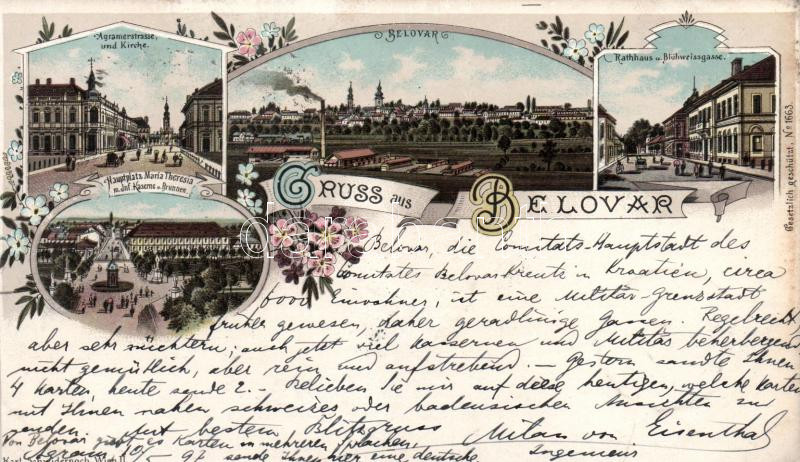 Agramerstrasse
und Kirche.
BELOVAR
Rathhaus u. Blühweissgasse.
Hauptplatz Maria Theresia
m. Inf. Kaserne u. Brunnen.
GRUSS aus BELOVAR
Gesetzlich geschützt, No 1663.
Belovar, die Comitats-Hauptstadt des
Comitates Belovar-Kreutz in Kroatien, circa
6000 Einwohner, ist eine Militär-Grenzstadt
früher gewesen, daher geradlinige Gassen. Regelrecht
aber sehr nüchtern; auch jetzt viel Kasernen und Militär beherbergend
nicht gemütlich, aber rein und aufstrebend. — Gestern sandte Ihnen
4 Karten, heute sende 2. — Belieben Sie mir auf diese heutigen, welche Karten
mit Ihnen nahen schweizer oder badensischen Ansichten zu
senden. Mit bestem Blitzgruss Milan von Eisenthal
Von Belovar giebt es Karten in mehreren Sprachen, Ingenieur
Agram 10/5 97 sende Ihnen hier eine deutsche
Karl Schwidernoch, Wien II.